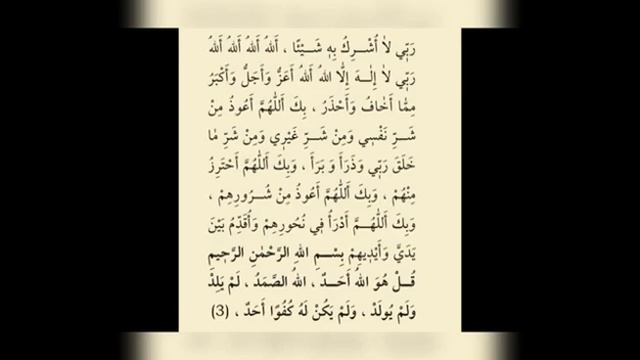 رَبِّي لاَ أُشْـرِكُ بِهِ شَـيْئًا ، اَللهُ اَللهُ اَللهُ اَللهُ
رَبِّي لاَ إِلٰـهَ إِلَّا اللهُ اَللهُ أَعَزُّ وَأَجَلُّ وَأَكْبَرُ
مِمَّا أَخَافُ وَأَحْذَرُ ، بِكَ اَللّٰهُمَّ أَعُوذُ مِنْ
شَـرِّ نَفْسِي وَمِنْ شَـرِّ غَيْرِي وَمِنْ شَرِّ مَا
خَلَقَ رَبِّي وَذَرَأَ وَ بَرَأَ ، وَبِكَ اَللّٰهُمَّ أَحْتَرِزُ
مِنْهُمْ ، وَبِكَ اَللّٰهُمَّ أَعُوذُ مِنْ شُـرُورِهِمْ ،
وَبِكَ اَللّٰهُـمَّ أَدْرَأُ فِي نُحُورِهِمْ وَأُقَدِّمُ بَيْنَ
يَدَيَّ وَأَيْدِيهِمْ بِسْـمِ اللهِ الرَّحْمٰنِ الرَّحِيمِ
قُـلْ هُوَ اللهُ أَحَـدٌ ، اَللهُ الصَّمَدُ ، لَمْ يَلِدْ
وَلَمْ يُولَدْ ، وَلَمْ يَكُنْ لَهُ كُفُوًا أَحَدٌ ، (3)